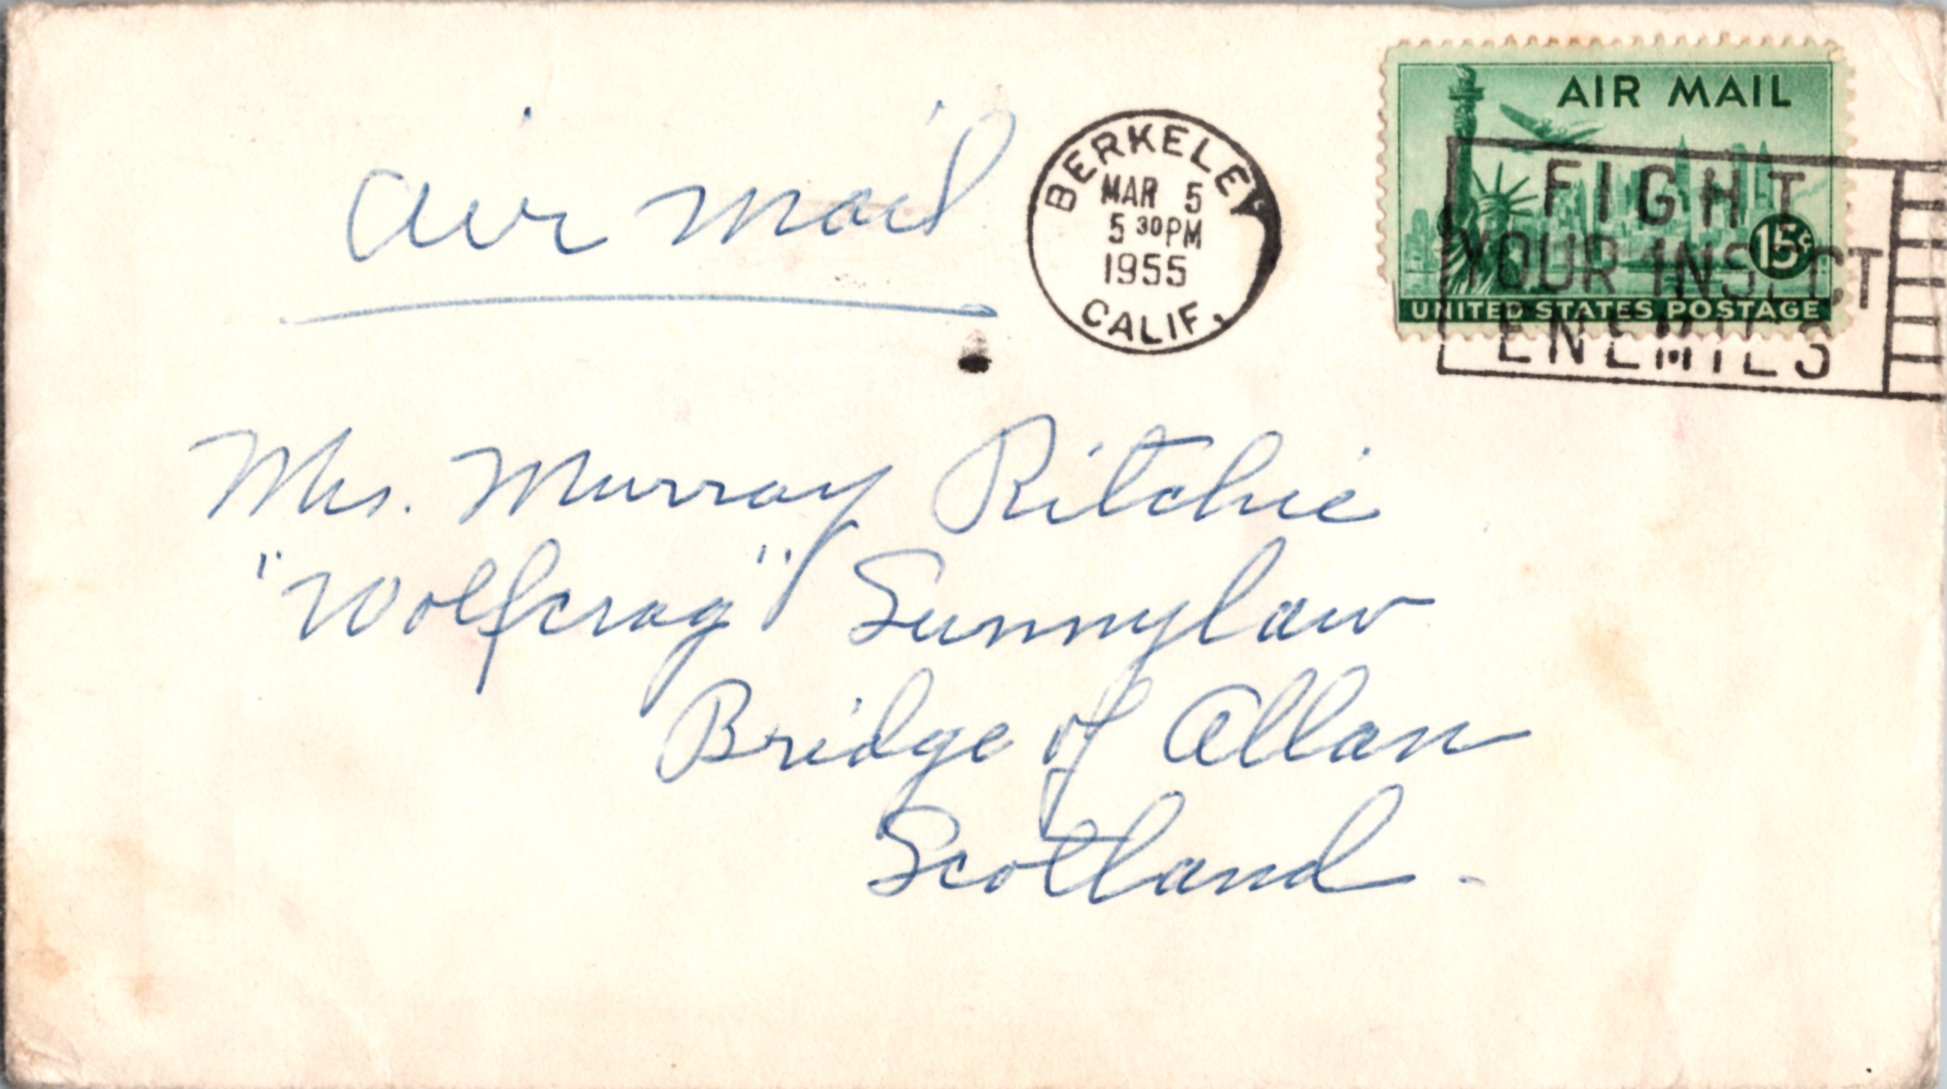 air mail
BERKELEY
MAR 5
5 30 PM
1955
CALIF.
AIR MAIL
15¢
UNITED STATES POSTAGE
FIGHT
YOUR INSECT
ENEMIES
Mrs. Murray Ritchie
"Wolfcrag" Sunnylaw
Bridge of Allan
Scotland.